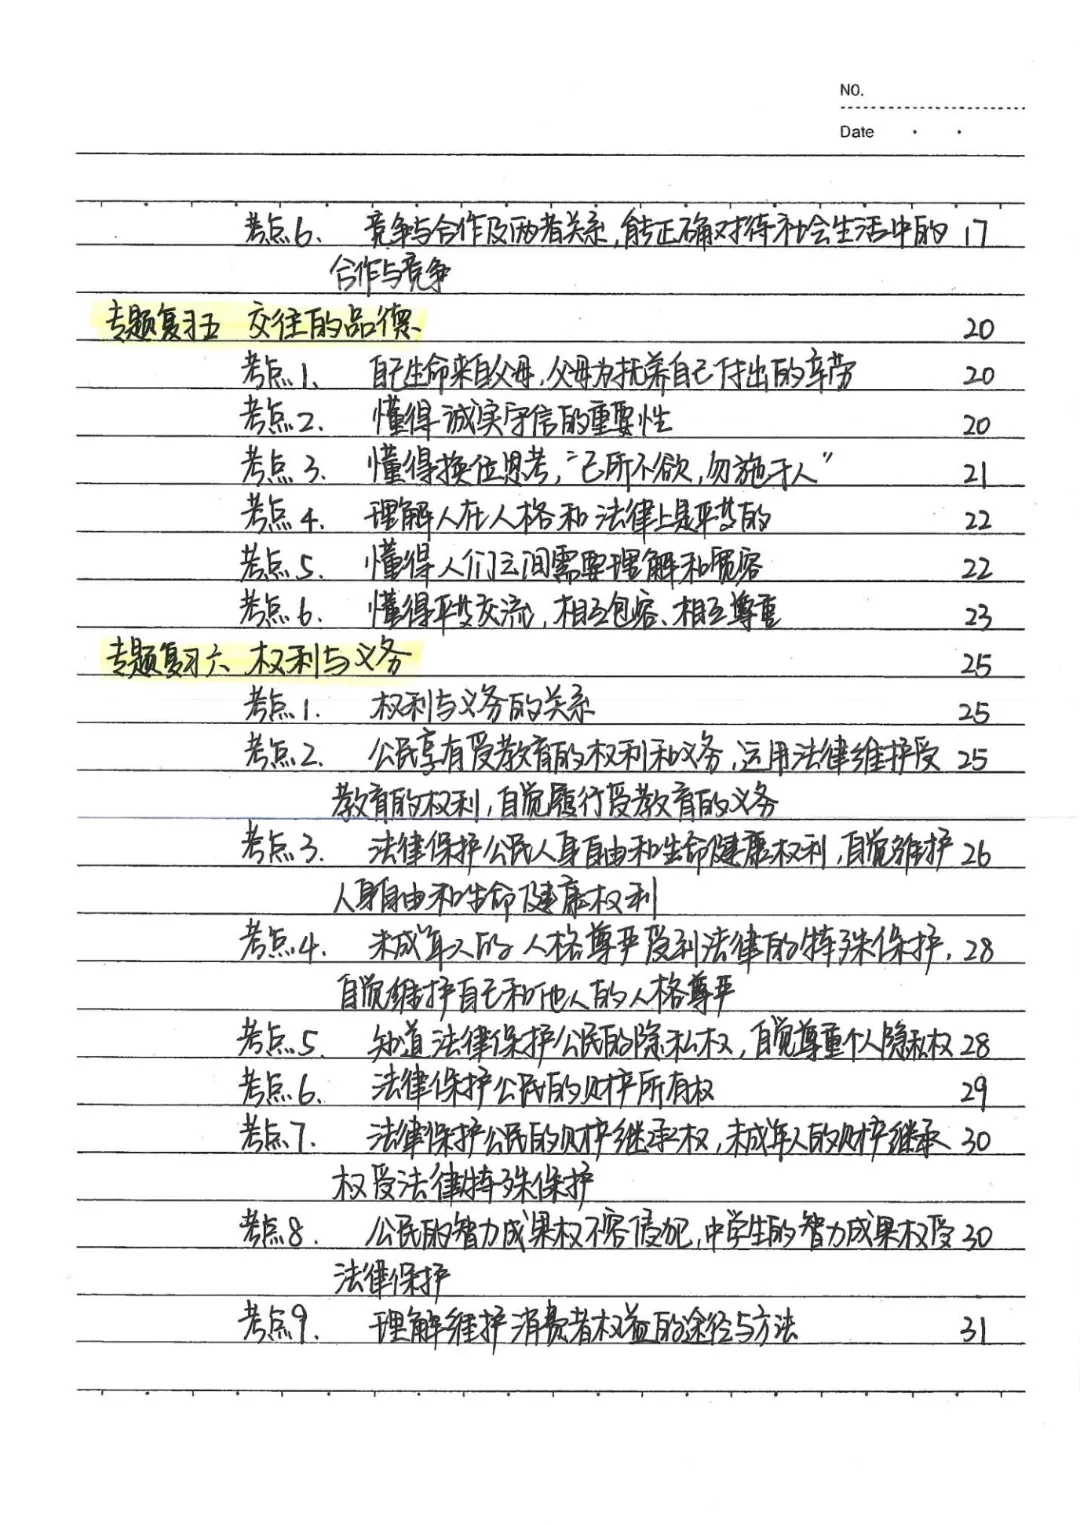 NO.
Date
考点6、 竞争与合作及两者关系,能正确对待社会生活中的 17
合作与竞争
专题复习五 交往的品德 20
考点1、 自己生命来自父母,父母为抚养自己付出的辛劳 20
考点2、 懂得诚实守信的重要性 20
考点3、 懂得换位思考,“己所不欲,勿施于人” 21
考点4、 理解人在人格和法律上是平等的 22
考点5、 懂得人们之间需要理解和宽容 22
考点6、 懂得平等交流,相互包容、相互尊重 23
专题复习六 权利与义务 25
考点1、 权利与义务的关系 25
考点2、 公民享有受教育的权利和义务,运用法律维护受 25
教育的权利,自觉履行受教育的义务
考点3、 法律保护公民人身自由和生命健康权利,自觉维护 26
人身自由和生命健康权利
考点4、 未成年人的人格尊严受到法律的特殊保护, 28
自觉维护自己和他人的人格尊严
考点5、 知道法律保护公民的隐私权,自觉尊重个人隐私权 28
考点6、 法律保护公民的财产所有权 29
考点7、 法律保护公民的财产继承权,未成年人的财产继承 30
权受法律特殊保护
考点8、 公民的智力成果权不容侵犯,中学生的智力成果权受 30
法律保护
考点9、 理解维护消费者权益的途径与方法 31